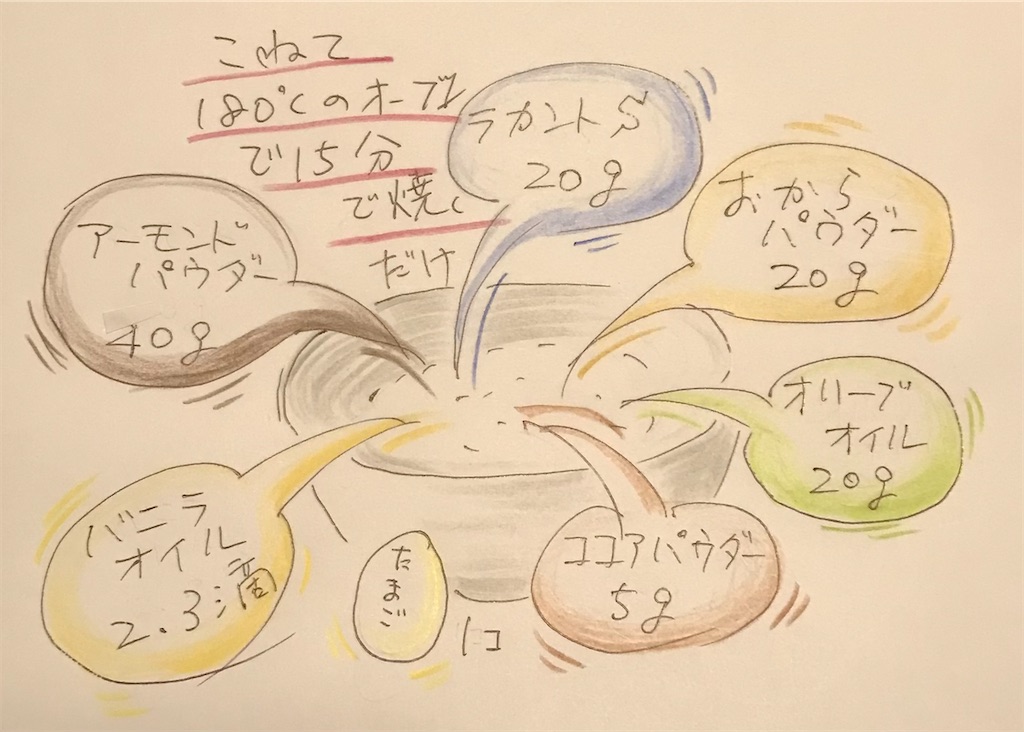 こねて
180℃のオーブン
で15分
で焼く
だけ
ラカントS
20g
おから
パウダー
20g
アーモンド
パウダー
40g
オリーブ
オイル
20g
バニラ
オイル
2.3滴
たまご
1コ
ココアパウダー
5g